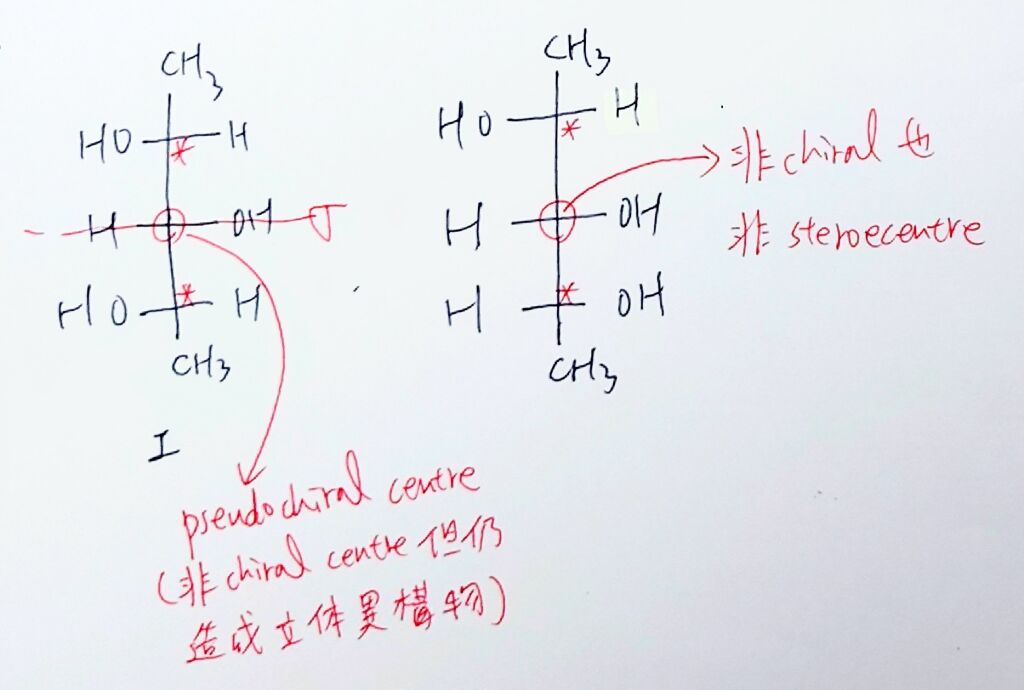 CH3
HO * H
H OH σ
HO * H
CH3
I
pseudochiral centre
(非chiral centre但仍
造成立体異構物)
CH3
HO * H
H OH
H * OH
CH3
非chiral也
非steroecentre